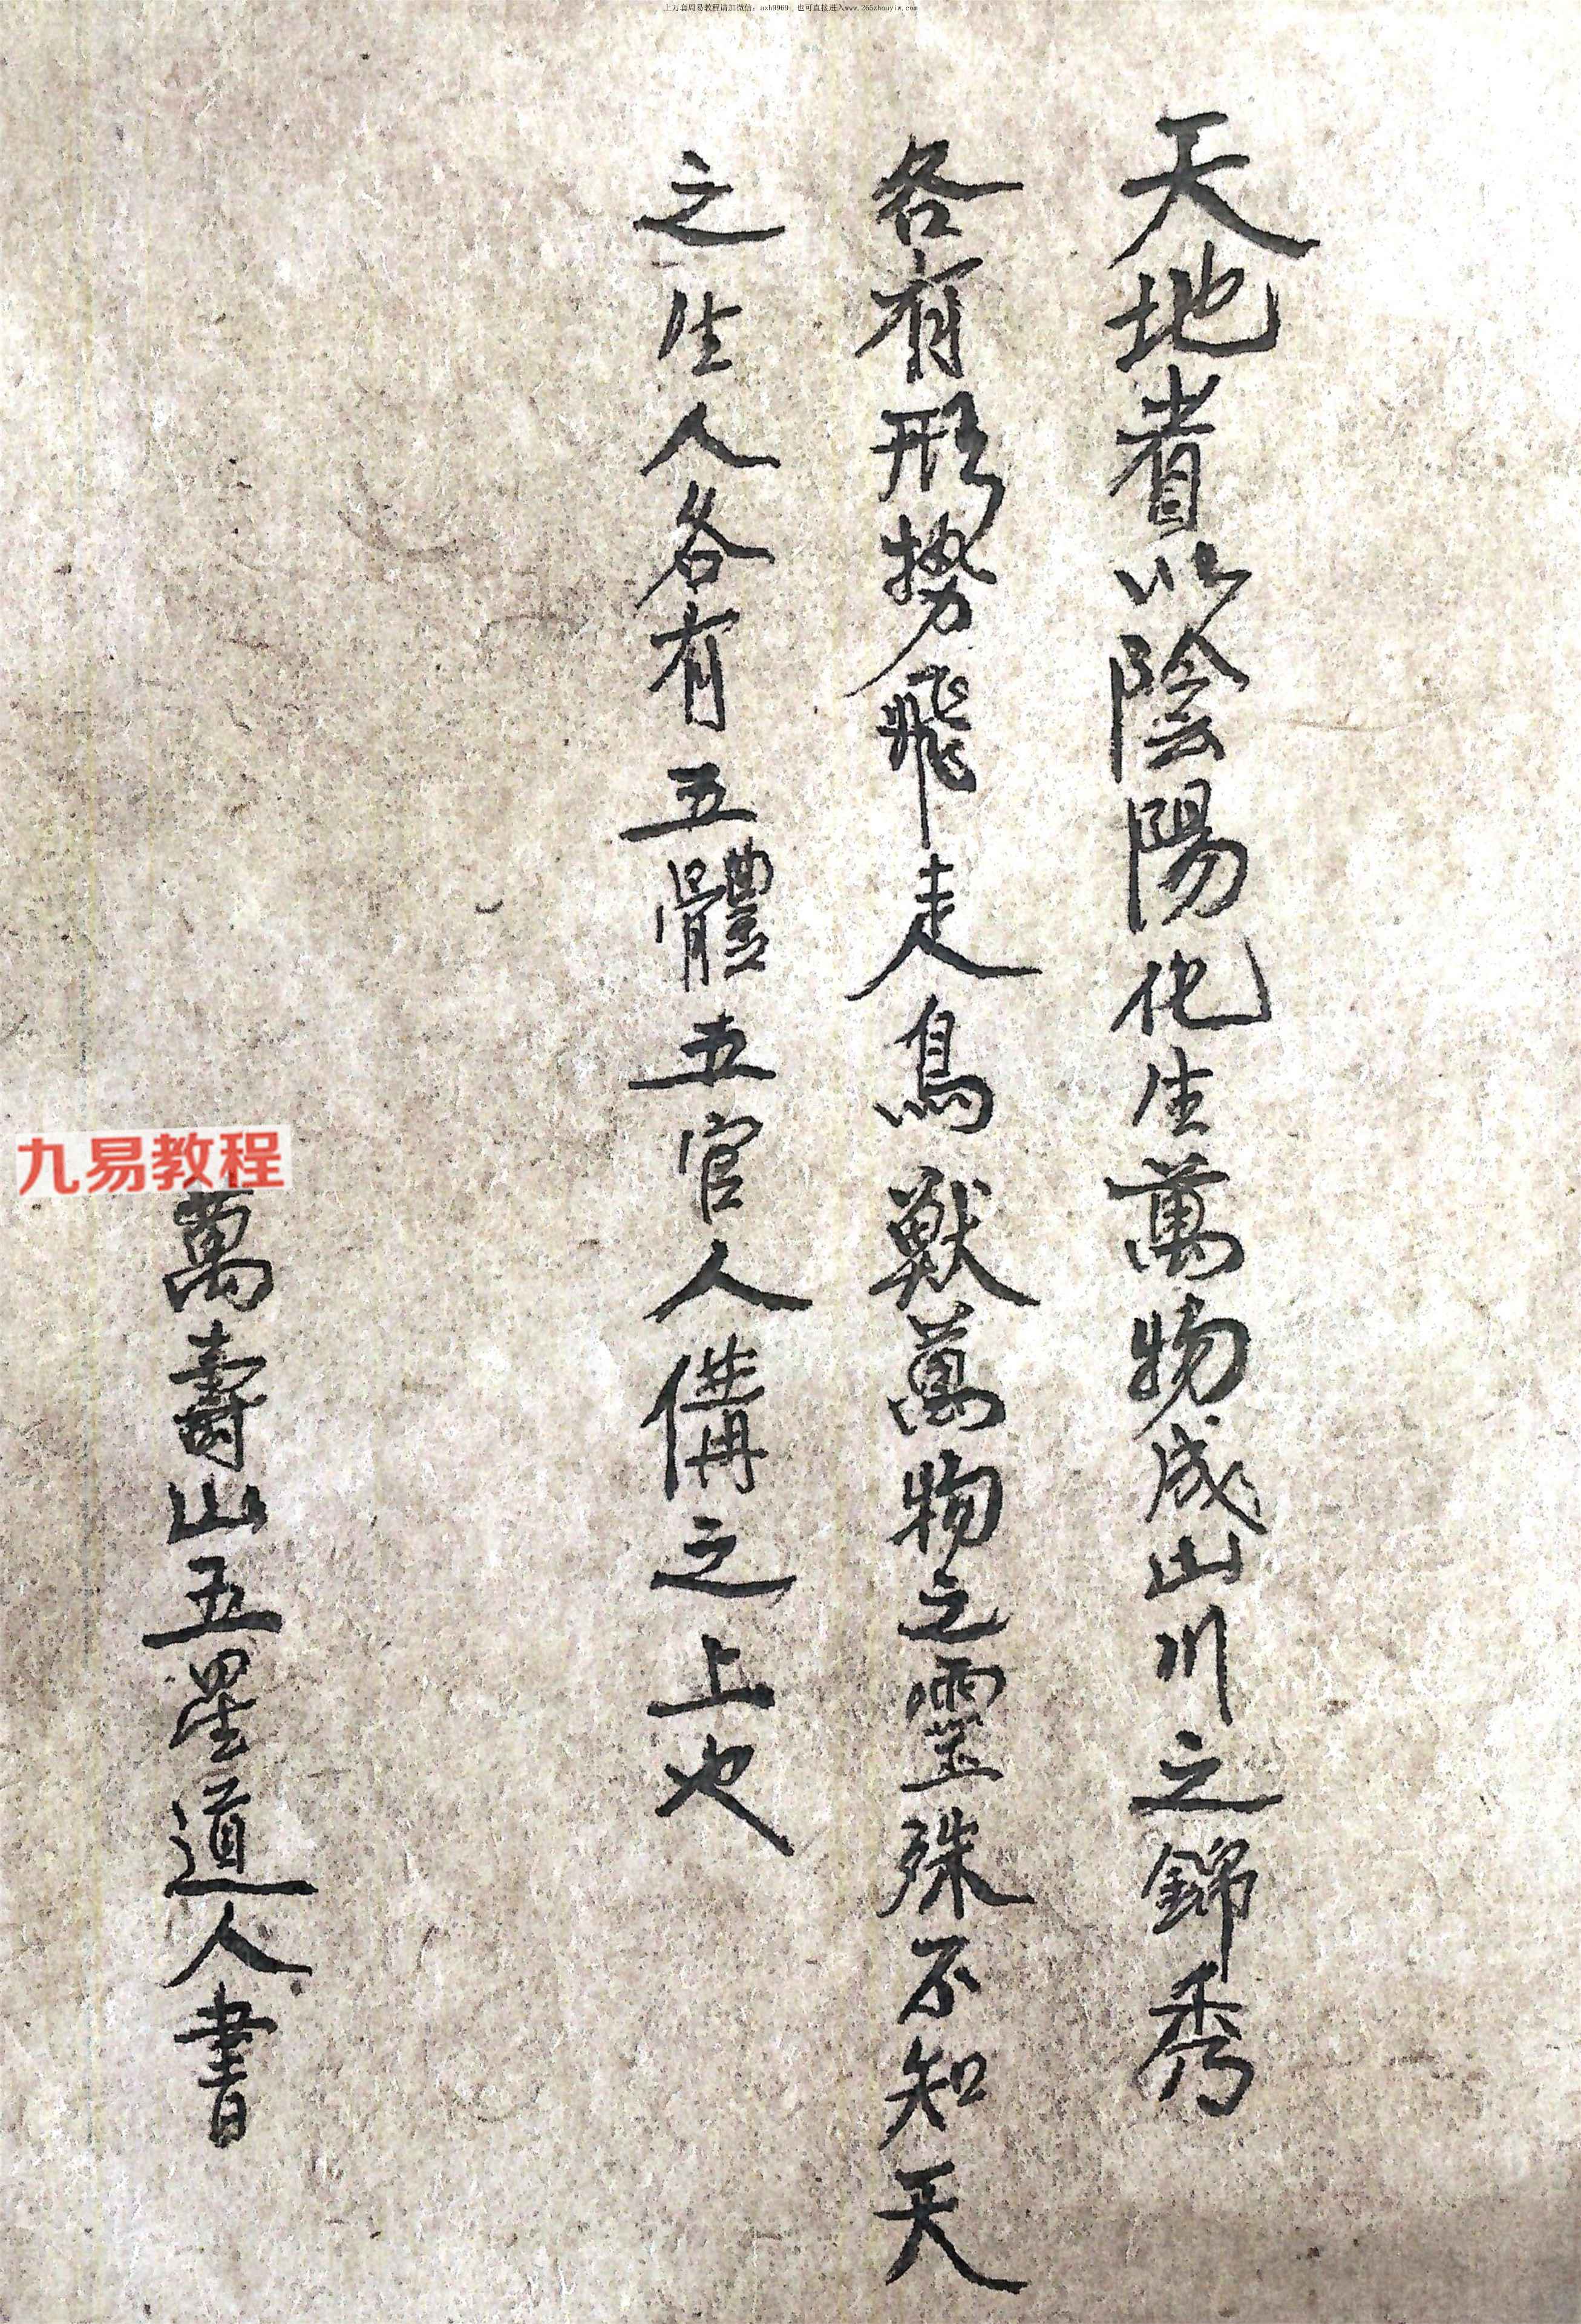 上万套周易教程请加微信：azh9969，也可直接进入www.265zhouyiw.com
天地者以陰陽化生萬物成山川之錦秀
各有形勢飛走鳥獸萬物之靈殊不知天
之生人各有五體五官人備之上也
九易教程
萬壽山五星道人書